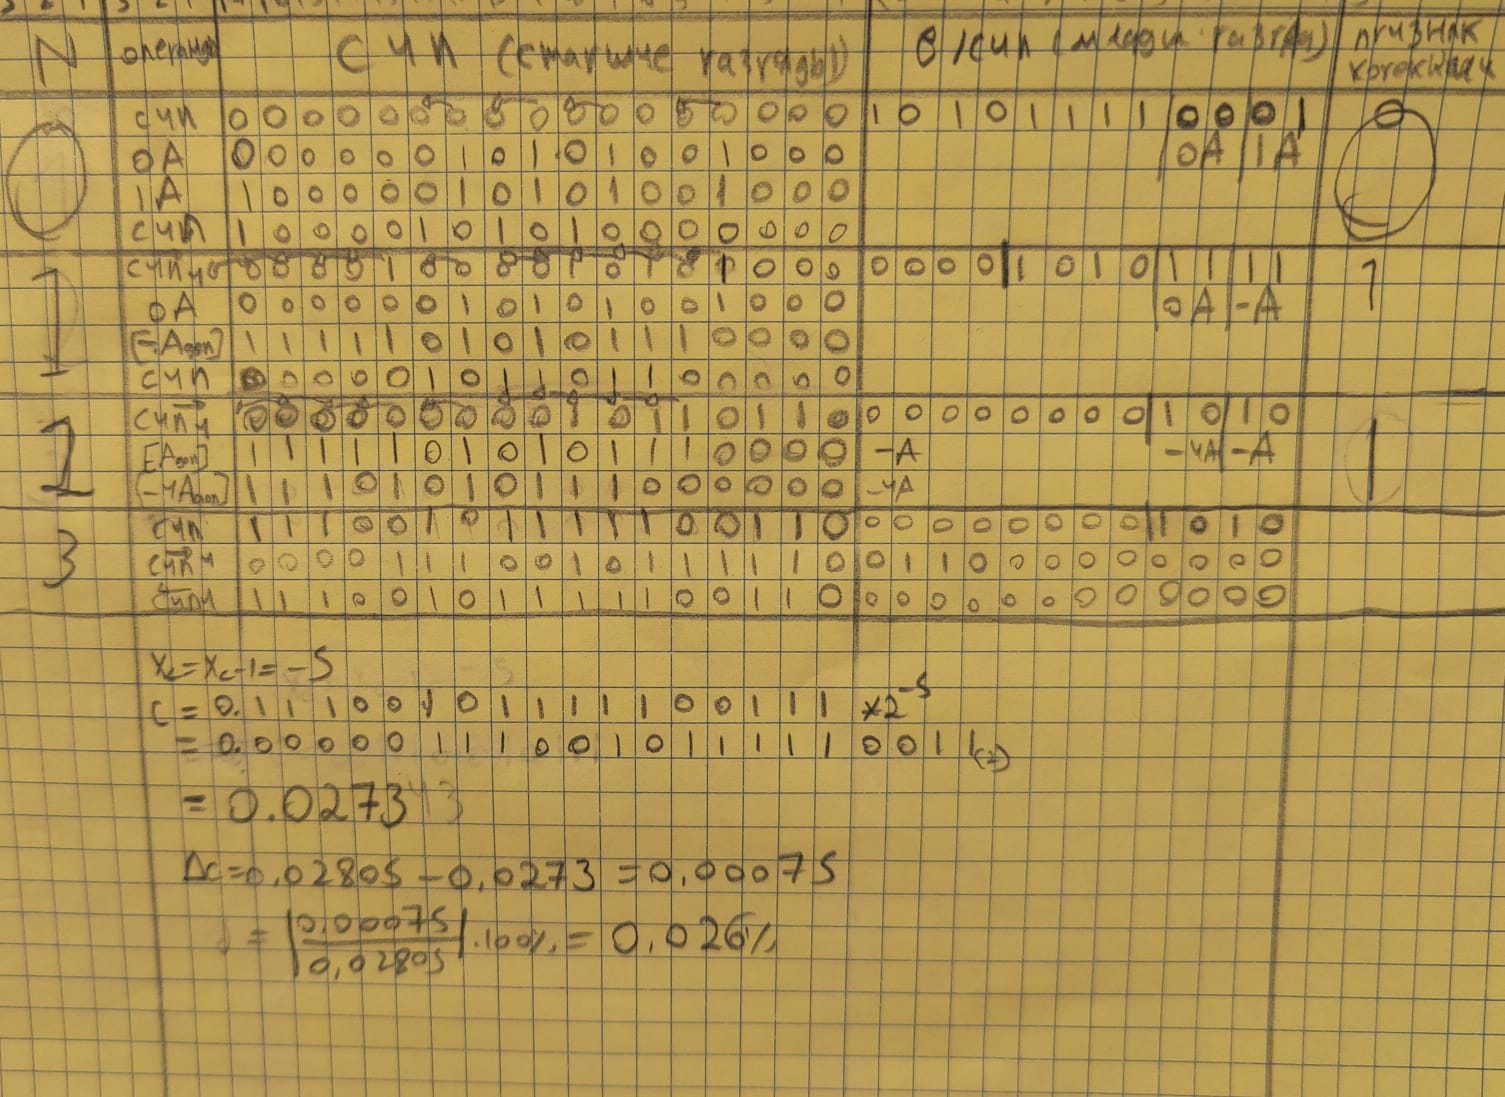 N операнды СЧП (старшие разряды) В/СЧП (младш. разряды) признак коррекции
0 СЧП 0 0 0 0 0 0 0 0 0 0 0 0 0 0 0 0 0 0 1 0 1 0 1 1 1 1 0 0 0 1 0
0A 0 0 0 0 0 0 1 0 1 0 1 0 0 1 0 0 0 0A 1A
1A 1 0 0 0 0 0 1 0 1 0 1 0 0 1 0 0 0
СЧП 1 0 0 0 0 1 0 1 0 1 0 0 0 0 0 0 0
1 СЧП4 0 0 0 0 1 0 0 0 0 1 0 1 0 1 0 0 0 0 0 0 0 1 0 1 0 1 1 1 1 1
0A 0 0 0 0 0 0 1 0 1 0 1 0 0 1 0 0 0 0A -A
[-Aдоп] 1 1 1 1 1 0 1 0 1 0 1 1 1 0 0 0 0
СЧП 0 0 0 0 0 1 0 1 1 0 1 1 0 0 0 0 0
2 СЧП4 0 0 0 0 0 0 0 0 0 1 0 1 1 0 1 1 0 0 0 0 0 0 0 0 0 1 0 1 0 1
[Aдоп] 1 1 1 1 1 0 1 0 1 0 1 1 1 0 0 0 0 -A -4A -A
[-4Aдоп] 1 1 1 0 1 0 1 0 1 1 1 0 0 0 0 0 0 -4A
3 СЧП 1 1 1 0 0 1 0 1 1 1 1 1 0 0 1 1 0 0 0 0 0 0 0 0 0 1 0 1 0
СЧП4 0 0 0 0 1 1 1 0 0 1 0 1 1 1 1 1 0 0 1 1 0 0 0 0 0 0 0 0 0
СЧП1 1 1 1 0 0 1 0 1 1 1 1 1 0 0 1 1 0 0 0 0 0 0 0 0 0 0 0 0 0
Xc=Xc-1=-5
C = 0.1 1 1 0 0 1 0 1 1 1 1 1 0 0 1 1 1 ×2^-5
= 0.0 0 0 0 0 1 1 1 0 0 1 0 1 1 1 1 1 0 0 1 1(2)
= 0.0273
Δc=0,02805-0,0273=0,00075
= |0,00075/0,02805|·100%=0,026%